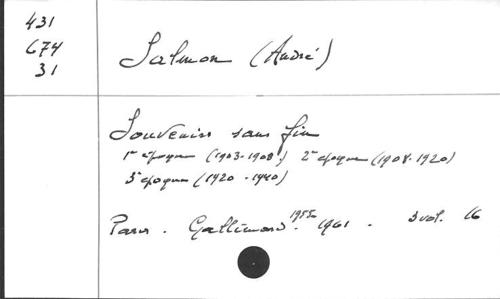 431
674
31
Salmon (André)
Souvenirs sans fin
1re époque (1903-1908) 2e époque (1908-1920)
3e époque (1920-1940)
Paris. Gallimard. 1955-1961. 3 vol. 16